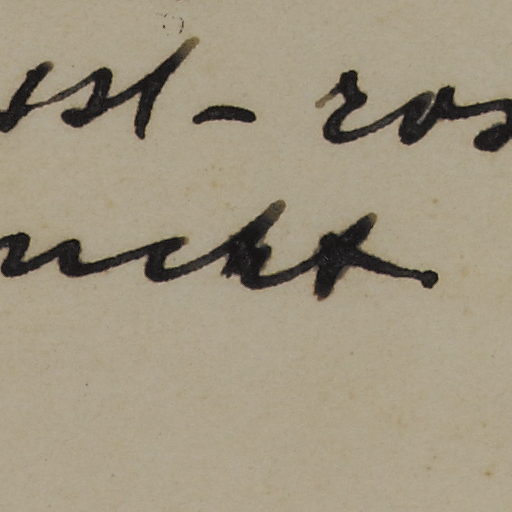 sst - ros
uckt